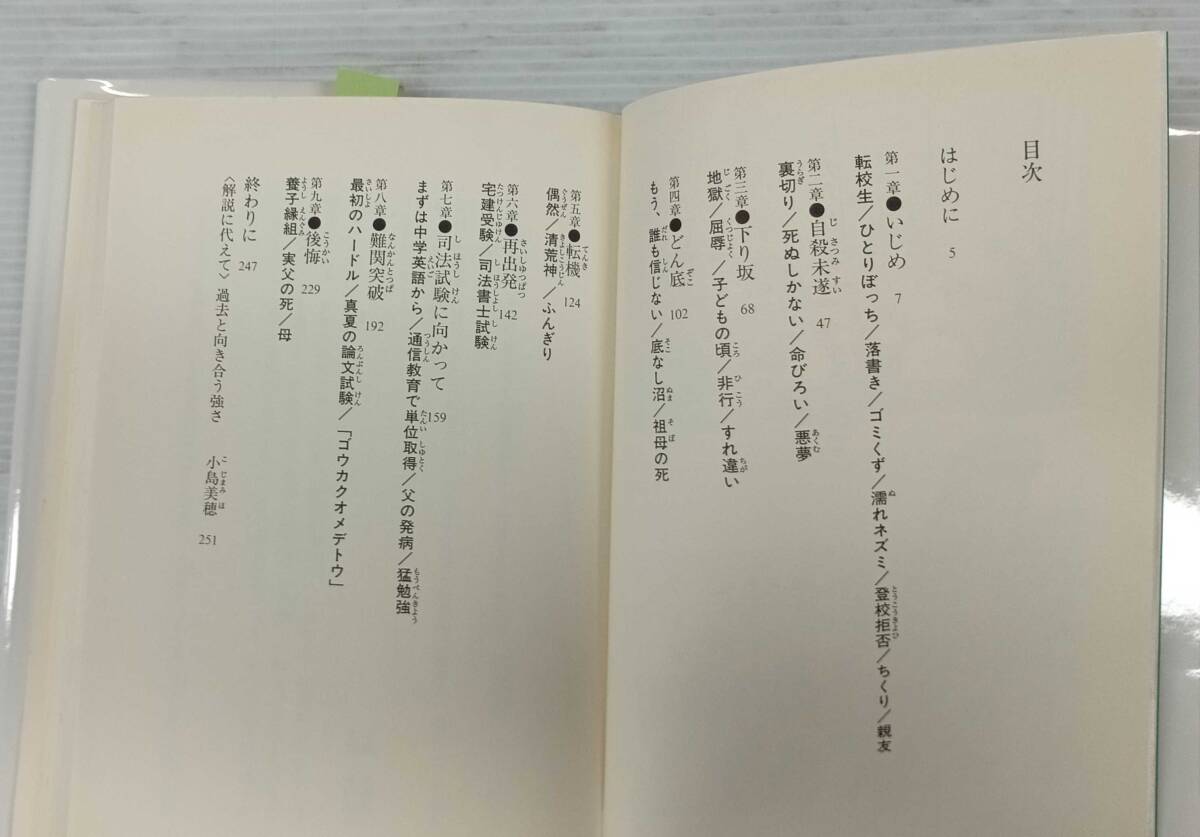 目次
はじめに 5
第一章●いじめ 7
転校生/ひとりぼっち/落書き/ゴミくず/濡れネズミ/登校拒否/ちくり/親友
第二章●自殺未遂 47
裏切り/死ぬしかない/命びろい/悪夢
第三章●下り坂 68
地獄/屈辱/子どもの頃/非行/すれ違い
第四章●どん底 102
もう、誰も信じない/底なし沼/祖母の死
第五章●転機 124
偶然/清荒神/ふんぎり
第六章●再出発 142
宅建受験/司法書士試験
第七章●司法試験に向かって 159
まずは中学英語から/通信教育で単位取得/父の発病/猛勉強
第八章●難関突破 192
最初のハードル/真夏の論文試験/「ゴウカクオメデトウ」
第九章●後悔 229
養子縁組/実父の死/母
終わりに 247
〈解説に代えて〉過去と向き合う強さ 小島美穂 251